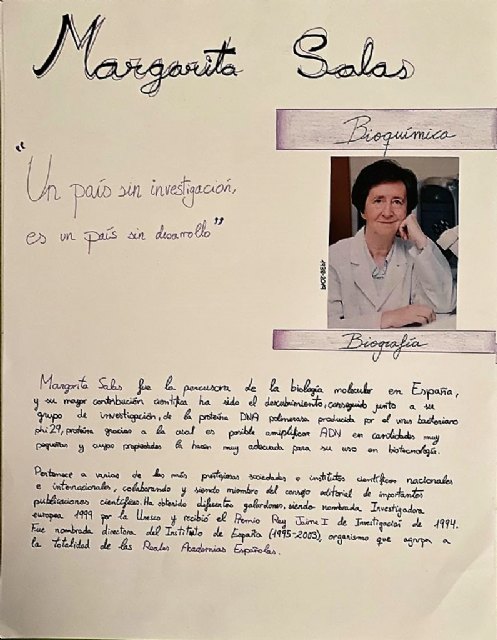 Margarita Salas
Bioquímica
"Un país sin investigación,
es un país sin desarrollo"
Biografía
Margarita Salas fue la percusora de la biología molecular en España,
y su mayor contribución científica ha sido el descubrimiento, conseguido junto a su
grupo de investigación, de la proteína DNA polimerasa producida por el virus bacteriano
phi 29, proteína gracias a la cual es posible amplificar ADN en cantidades muy
pequeñas y cuyas propiedades la hacen muy adecuada para su uso en biotecnología.
Pertenece a varias de las más prestigiosas sociedades e institutos científicos nacionales
e internacionales, colaborando y siendo miembro del consejo editorial de importantes
publicaciones científicas. Ha obtenido diferentes galardones, siendo nombrada, Investigadora
europea 1999 por la Unesco y recibió el Premio Rey Jaime I de Investigación de 1994.
Fue nombrada directora del Instituto de España (1995-2003), organismo que agrupa a
la totalidad de las Reales Academias Españolas.